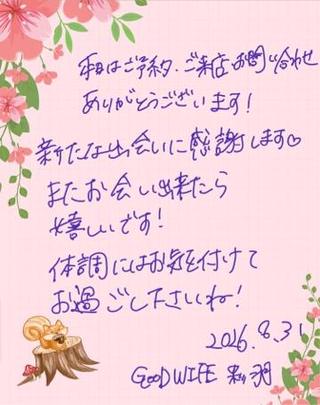 本日はご予約、ご来店、お問い合わせ
ありがとうございます!
新たな出会いに感謝します♡
またお会い出来たら
嬉しいです!
体調にはお気を付けて
お過ごし下さいね!
2026.8.31
GOOD WIFE